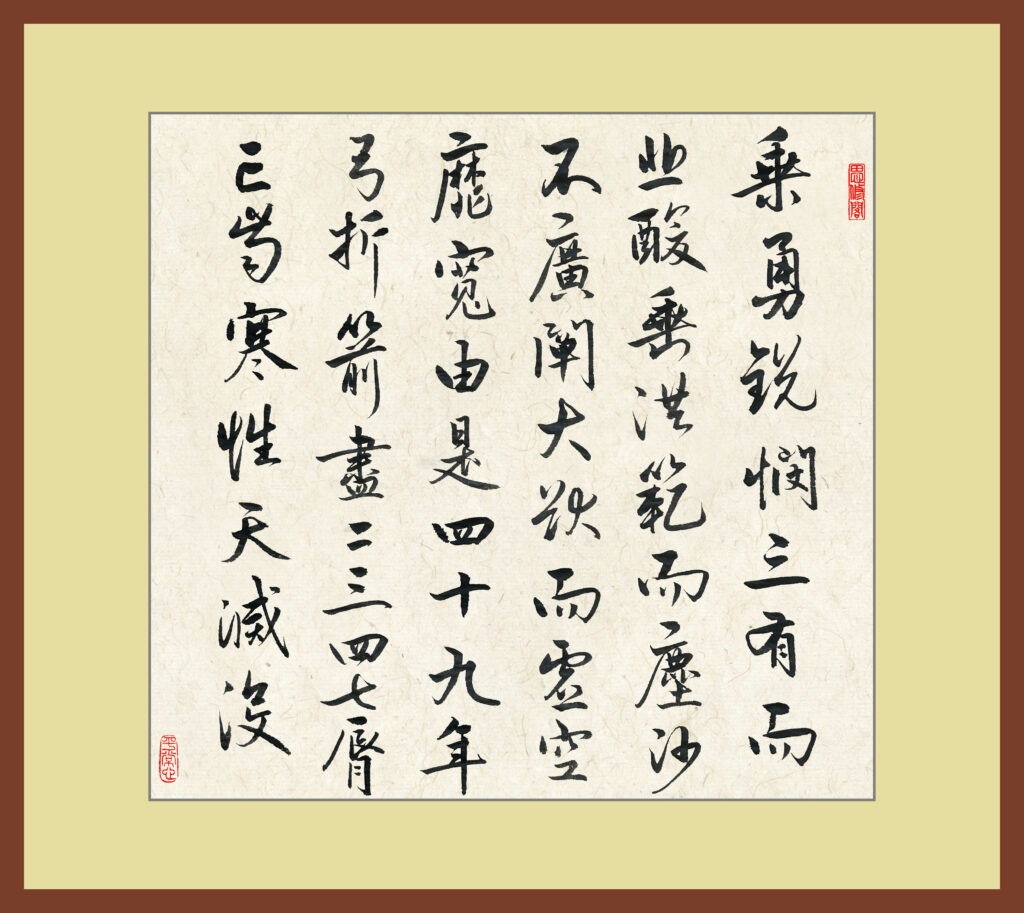 思修閣
乘勇銳憫三有而
悲酸垂洪範而塵沙
不廣闡大猷而虛空
靡寬由是四十九年
弓折箭盡二三四七脣
亡齒寒性天滅沒
平常心